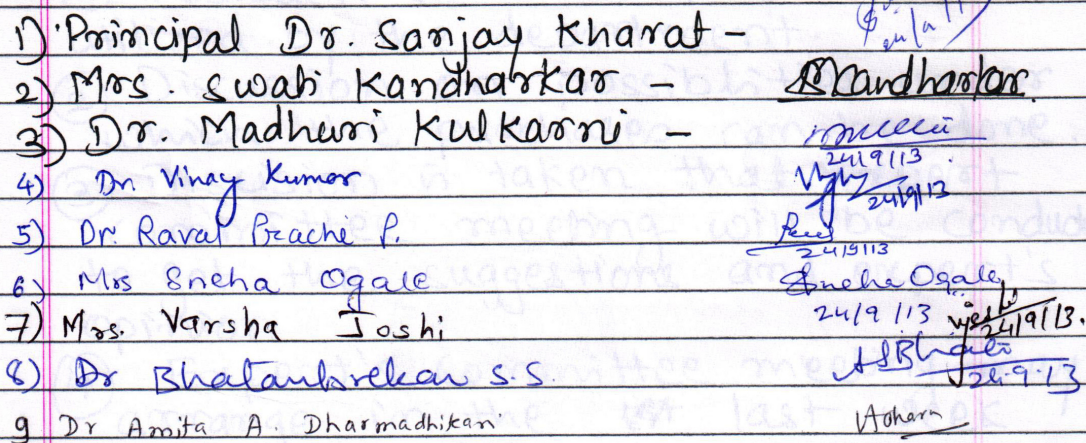 1) Principal Dr. Sanjay Kharat -
2) Mrs. Swati Kandharkar - SKandharkar
3) Dr. Madhuri Kulkarni -
24/9/13
4) Dr. Vinay Kumar
24/9/13
5) Dr. Raval Prachi P.
24/9/13
6) Mrs Sneha Ogale Sneha Ogale
24/9/13
7) Mrs. Varsha Joshi
24/9/13.
8) Dr Bhatambrekar S.S.
24.9.13
9 Dr Amita A. Dharmadhikari